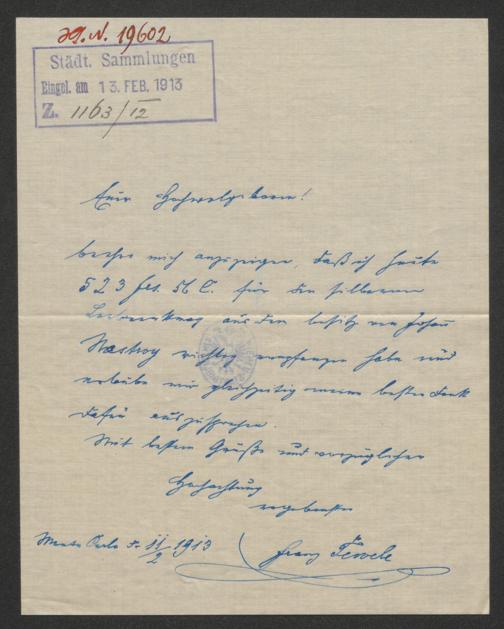 H. N. 19602
Städt. Sammlungen
Eingel. am 13. FEB. 1913
Z. 1163/12
Euer Hochwolgeboren!
beehre mich anzuzeigen, daß ich heute
523 frs. 56 C. für den silbernen
aus dem Besitz von Johan
Nestroy richtig empfangen habe und
erlaube mir gleichzeitig meinen besten Dank
dafür auszusprechen.
Mit besten Grüße und vorzüglicher
Hochachtung
ergebenster
Monte Carlo d. 11/2 1913
Franz Tewele